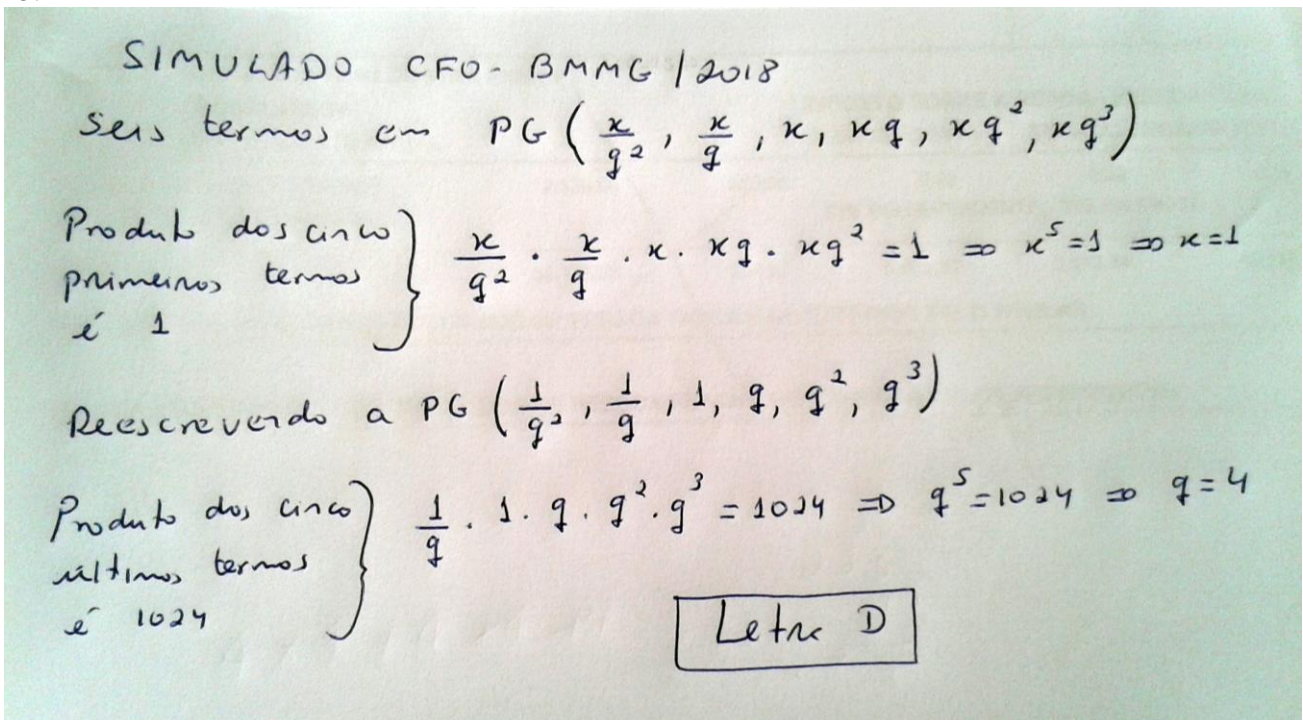 SIMULADO CFO - BMMG / 2018
Seis termos em PG ( x/q², x/q, x, xq, xq², xq³ )
Produto dos cinco primeiros termos é 1 } x/q² · x/q · x · xq · xq² = 1 ⇒ x⁵ = 1 ⇒ x = 1
Reescrevendo a PG ( 1/q², 1/q, 1, q, q², q³ )
Produto dos cinco últimos termos é 1024 } 1/q · 1 · q · q² · q³ = 1024 ⇒ q⁵ = 1024 ⇒ q = 4
Letra D